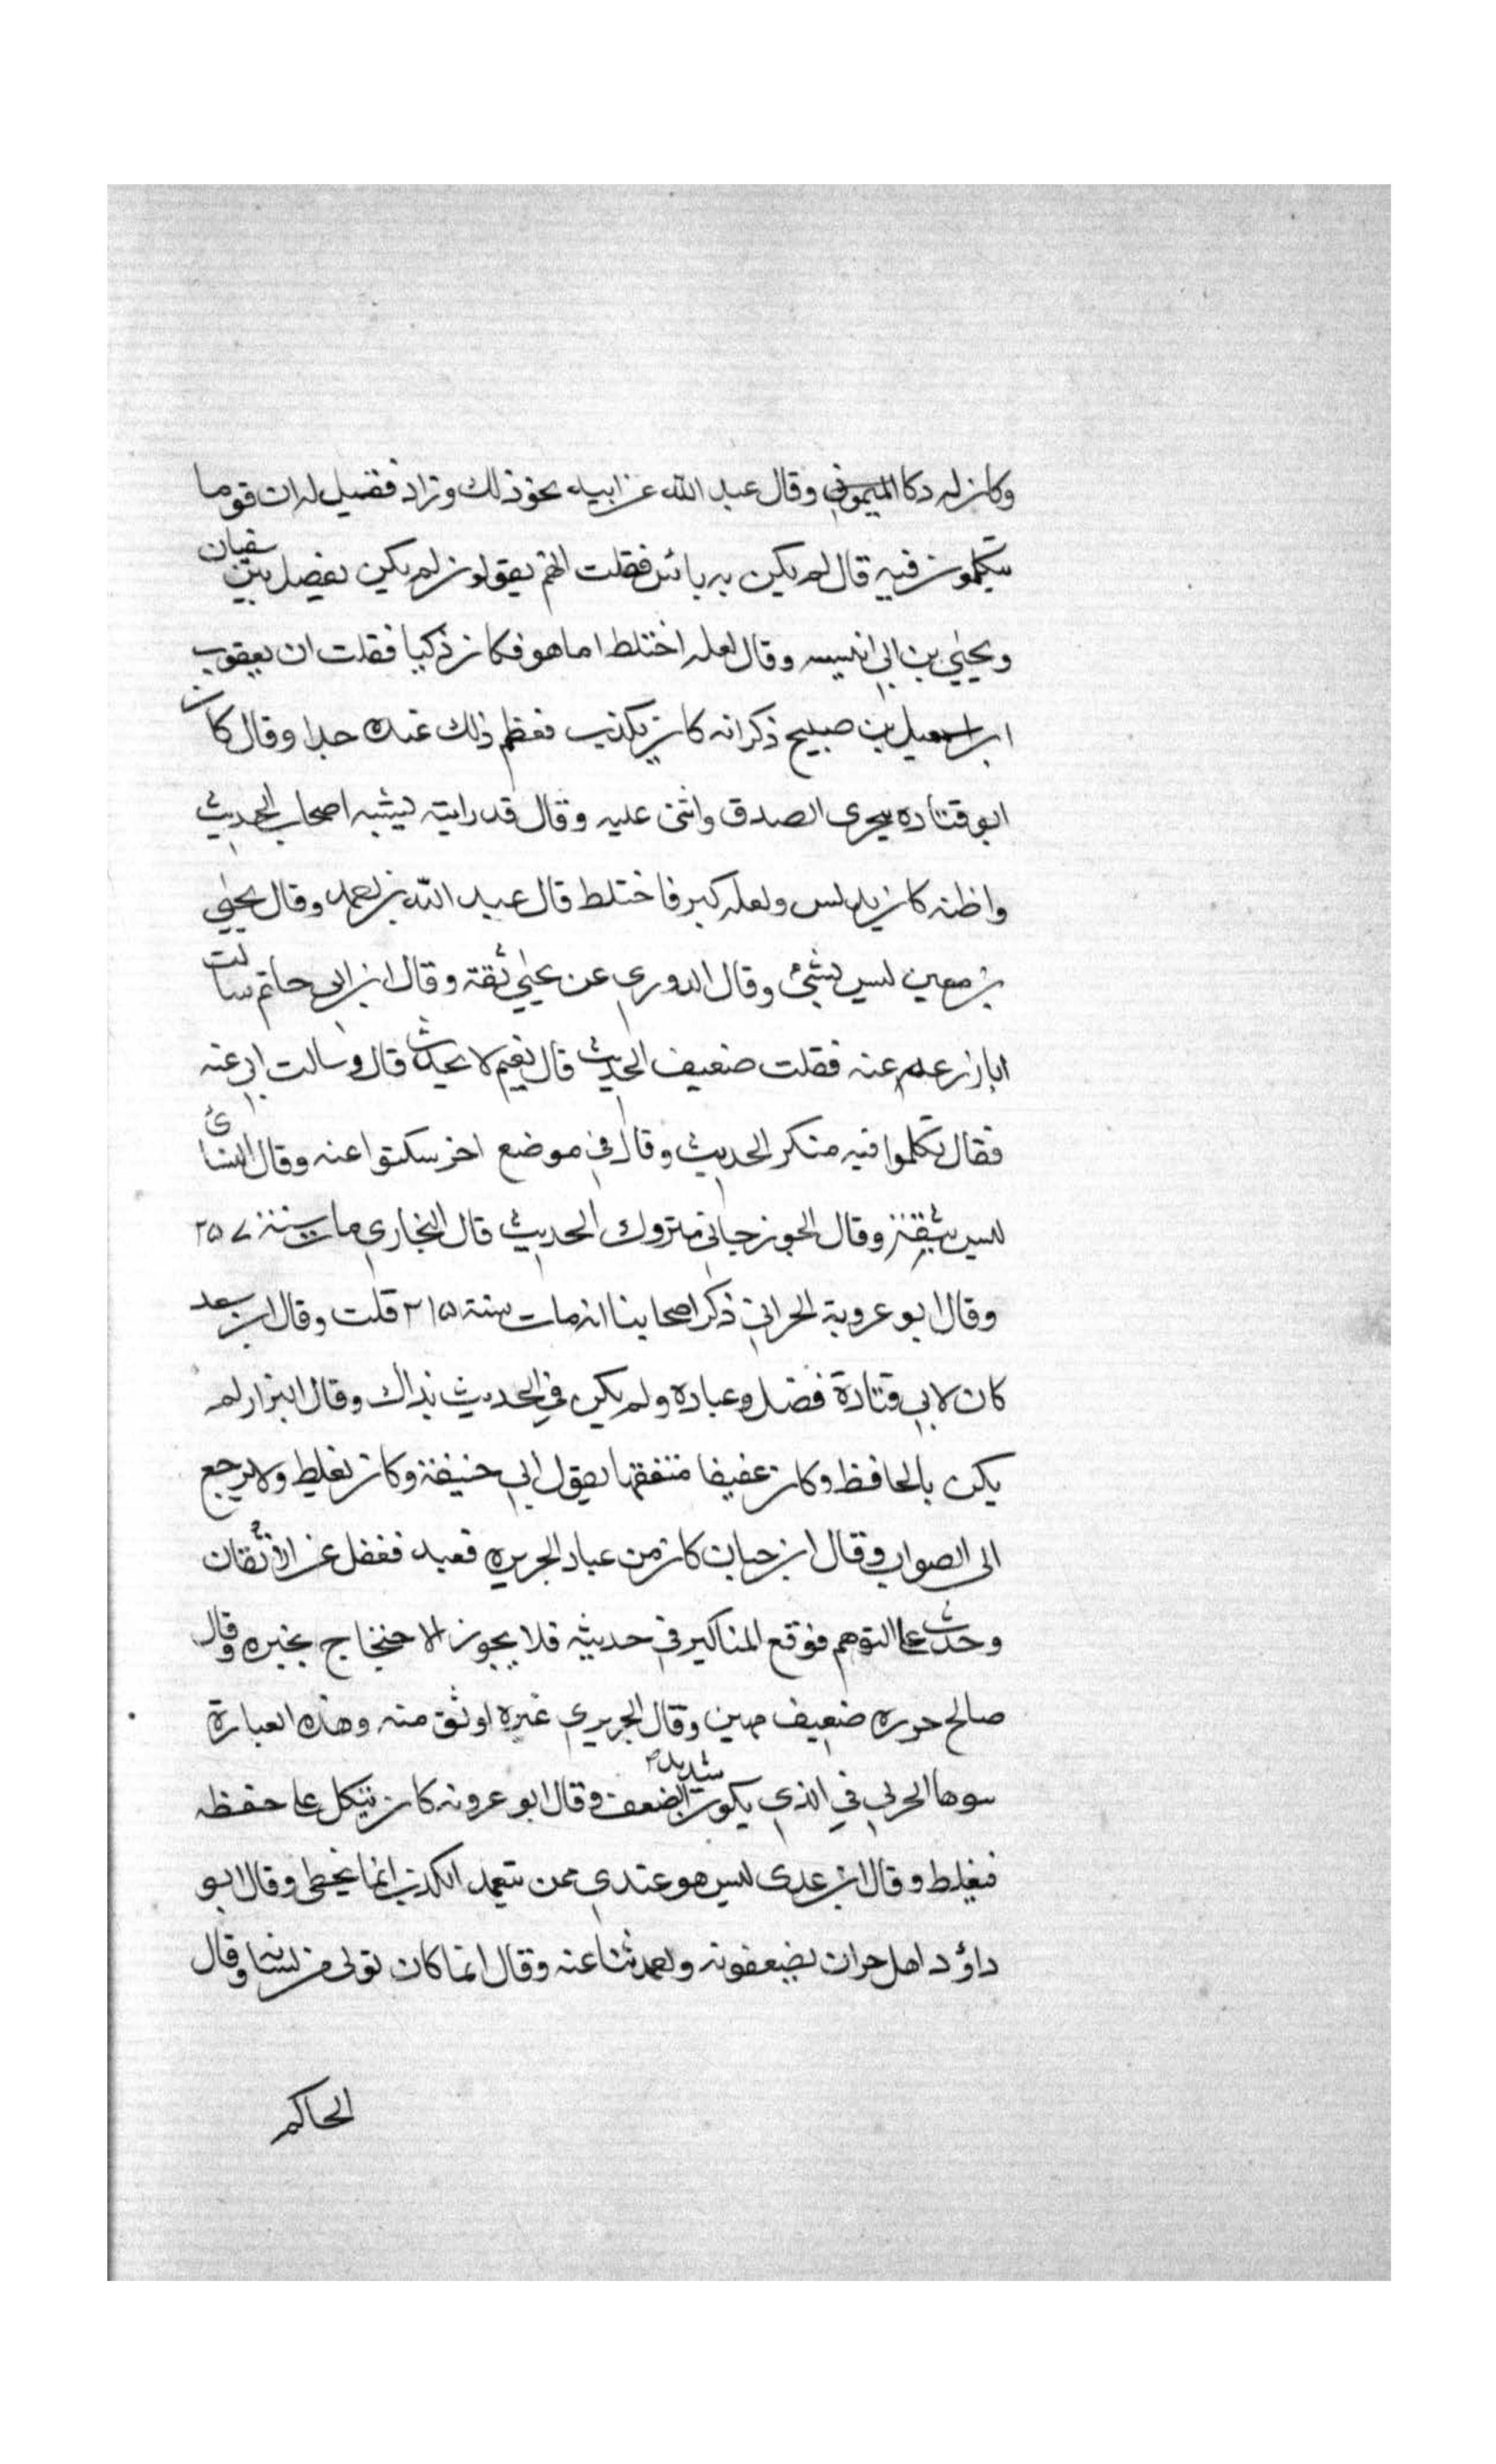 وكان له دكا الميموني وقال عبد الله عن ابيه نحو ذلك وزاد فقيل له ان قوما
يتكلمون فيه قال لم يكن به بائس فقلت انهم يقولون لم يكن يفصل بين سفيان
ويحيي بن ابي انيسه وقال لعله اختلط اما هو فكان ذكيا فقلت ان يعقوب
ابن اسمعيل بن صبيح ذكر انه كان يكذب فعظم ذلك عنده جدا وقال كان
ابو قتاده يتحرى الصدق واثنى عليه وقال قد رايته يشبه اصحاب الحديث
واظنه كان يدلس ولعله كبر فاختلط قال عبد الله بن احمد وقال يحيي
بن معين ليس بشيء وقال الدوري عن يحيي ثقة وقال ابن ابي حاتم سالت
ابا زرعه عنه فقلت ضعيف الحديث قال نعم لا يحدث قال وسالت ابي عنه
فقال تكلموا فيه منكر الحديث وقال في موضع اخر سكتوا عنه وقال النسائ
ليس بثقة وقال الجوزجاني متروك الحديث قال البخاري مات سنة ٢٥٧
وقال ابو عروبة الحراني ذكر اصحابنا انه مات سنة ٢١٥ قلت وقال ابن سعد
كان لابي قتادة فضل وعبادة ولم يكن في الحديث بذاك وقال البزار لم
يكن بالحافظ وكان عفيفا متفقها بقول ابي حنيفة وكان يغلط ولا يرجع
الى الصواب وقال ابن حبان كان من عباد الجزيره فعبد فغفل عن الاتقان
وحدث على التوهم فوقع المناكير في حديثه فلا يجوز الاحتجاج بخبره وقال
صالح جزره ضعيف مهين وقال الجريري غيره اوثق منه وهذه العبارة
سوها الحربي في الذي يكون شديد الضعف وقال ابو عروبه كان يتكل على حفظه
فيغلط وقال ابن عدى ليس هو عندي ممن يتعمد الكذب انما يخطى وقال ابو
داؤد اهل حران يضعفونه واحمد ثنا عنه وقال انما كان تولى من لسانه وقال
الحاكم